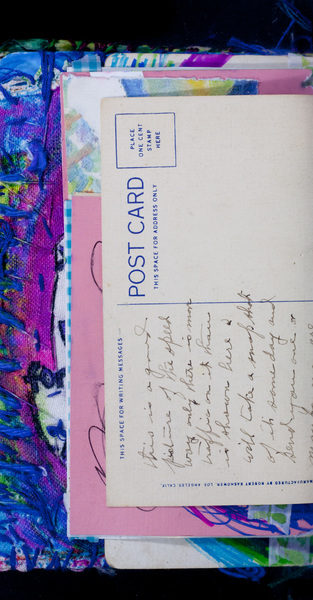 PLACE
ONE CENT
STAMP
HERE
POST CARD
THIS SPACE FOR ADDRESS ONLY
THIS SPACE FOR WRITING MESSAGES
This is a good
picture of the speed
way only there is more
traffic on it than
is shown here I
will take a snap shot
of it some day and
send you one
MANUFACTURED BY ROBERT KASHOWER, LOS ANGELES, CALIF.